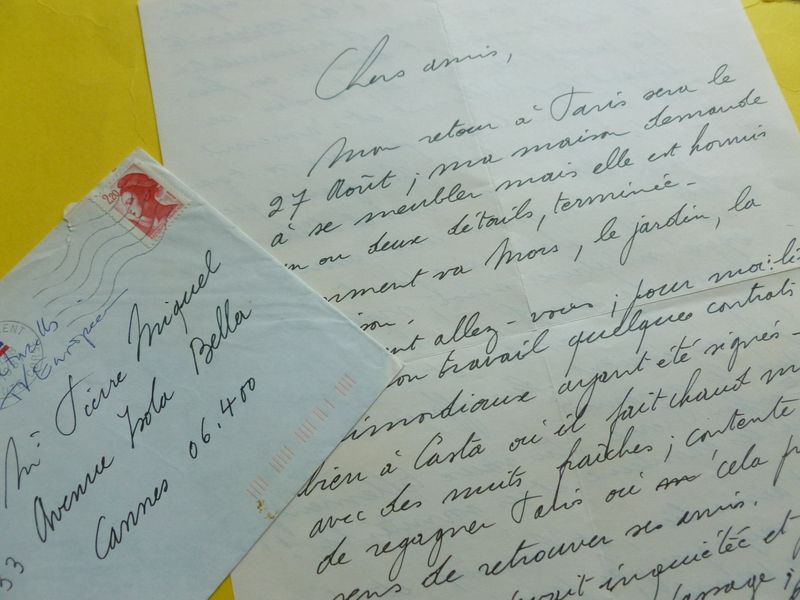 Chers amis,
Mon retour à Paris sera le
27 Août ; ma maison demande
à se meubler mais elle est hormis
un ou deux détails, terminée -
va Mors, le jardin, la
allez-vous ; pour moi :
travail quelques contrats
ayant été signés -
bien à Casta où il fait chaud
avec des nuits fraîches ; contente
de regagner Paris où cela
de retrouver ses amis.
inquiétée et
2,20
Mr Pierre Miquel
33 Avenue Isola Bella
Cannes 06.400